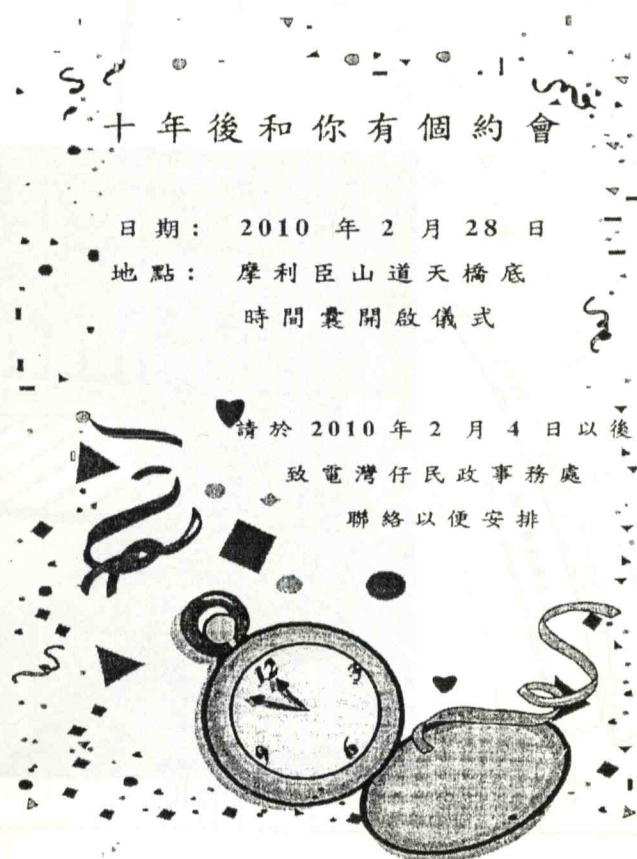 十年後和你有個約會
日期： 2010 年 2 月 28 日
地點： 摩利臣山道天橋底
時間囊開啟儀式
請於 2010 年 2 月 4 日以後
致電灣仔民政事務處
聯絡以便安排
12
3
9
6